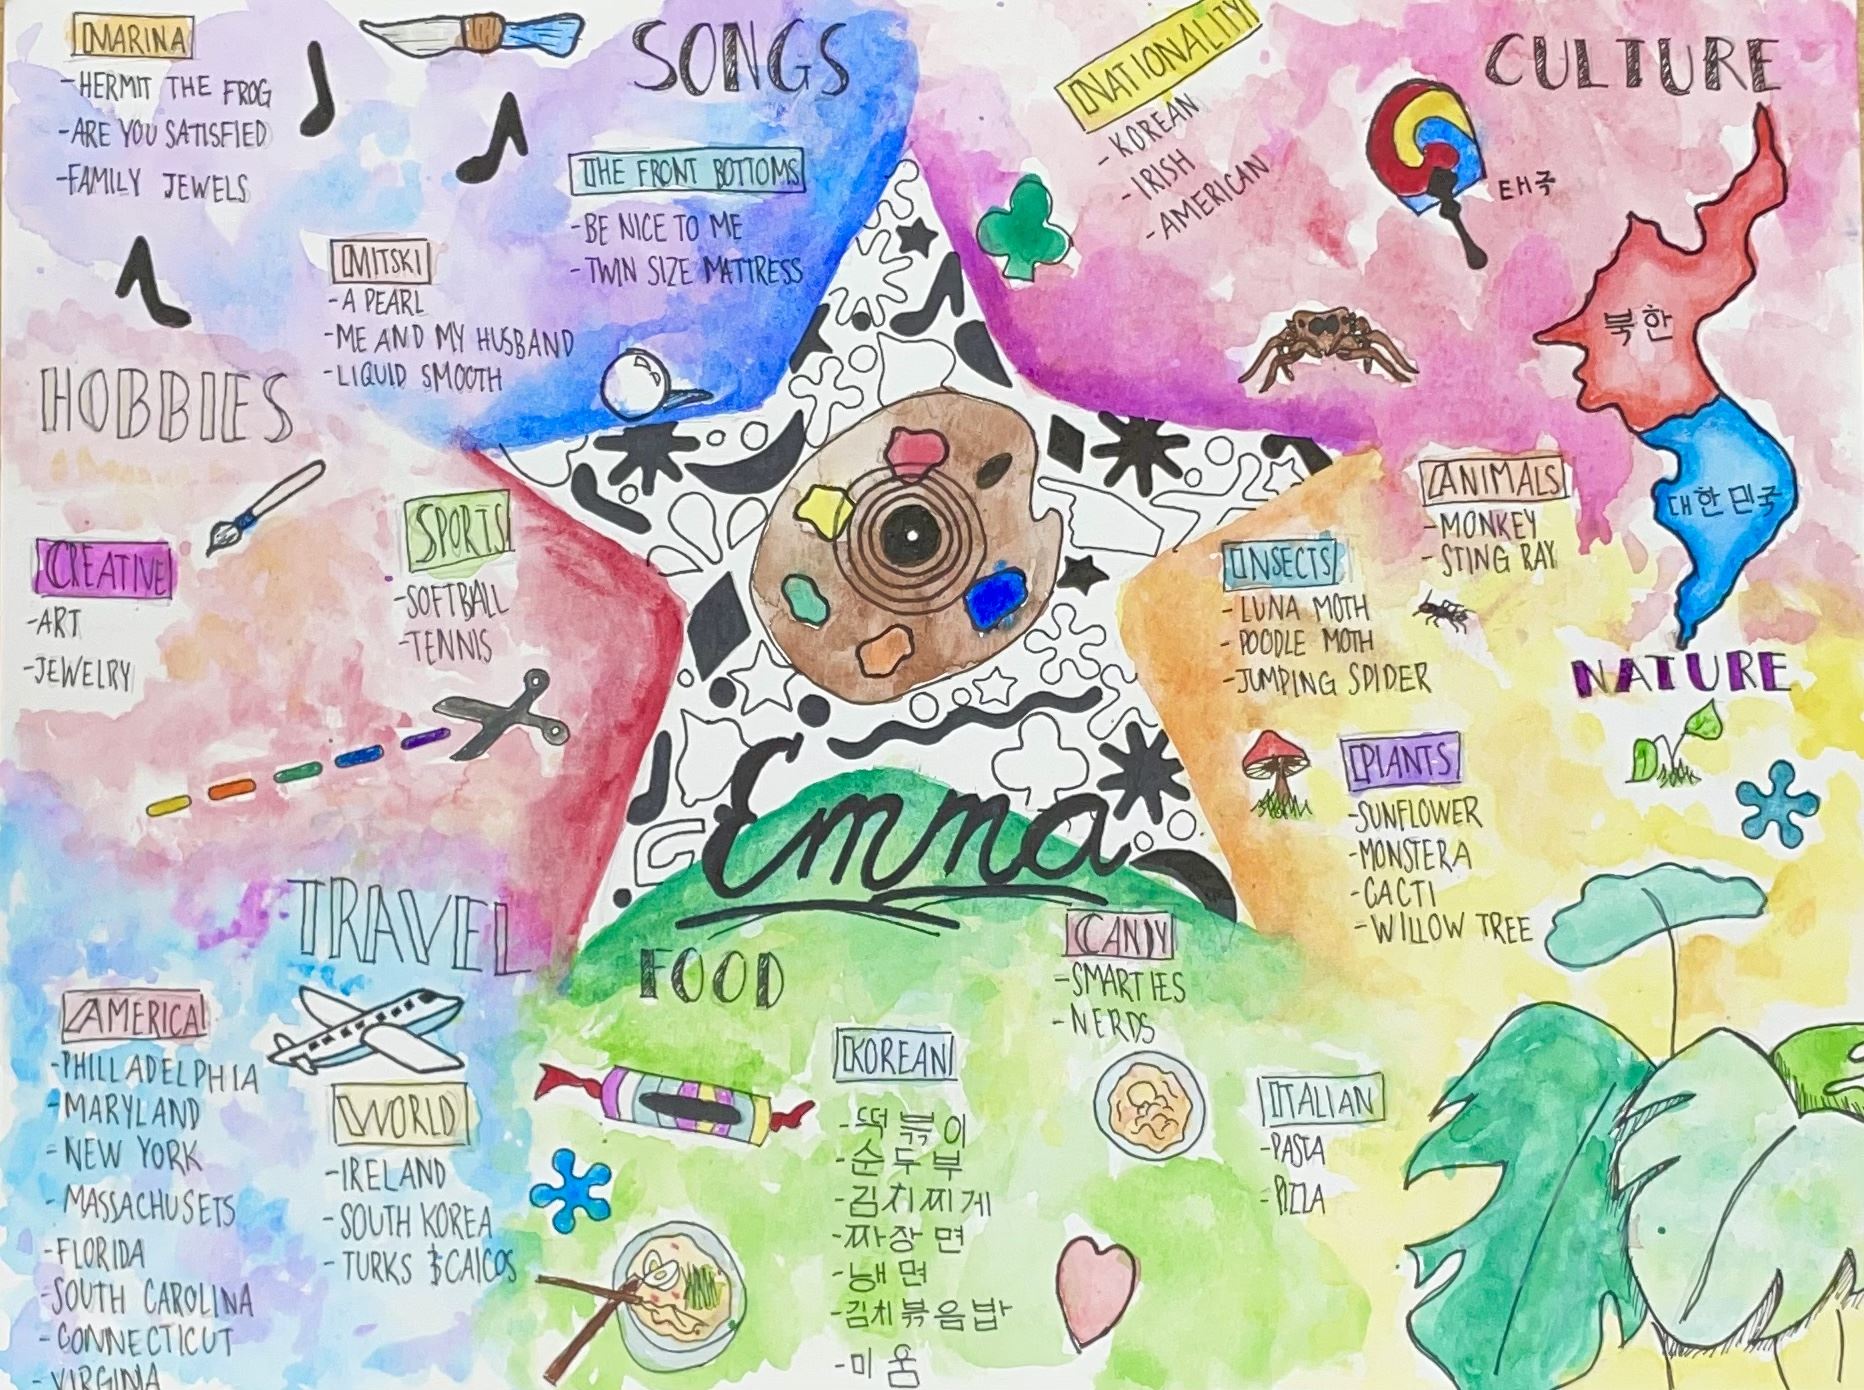 SONGS
MARINA
-HERMIT THE FROG
-ARE YOU SATISFIED
-FAMILY JEWELS
MITSKI
-A PEARL
-ME AND MY HUSBAND
-LIQUID SMOOTH
THE FRONT BOTTOMS
-BE NICE TO ME
-TWIN SIZE MATTRESS
CULTURE
NATIONALITY
-KOREAN
-IRISH
-AMERICAN
태국
북한
대한민국
HOBBIES
CREATIVE
-ART
-JEWELRY
SPORTS
-SOFTBALL
-TENNIS
NATURE
ANIMALS
-MONKEY
-STING RAY
INSECTS
-LUNA MOTH
-POODLE MOTH
-JUMPING SPIDER
PLANTS
-SUNFLOWER
-MONSTERA
-CACTI
-WILLOW TREE
Emma
TRAVEL
AMERICA
-PHILLADELPHIA
-MARYLAND
-NEW YORK
-MASSACHUSETS
-FLORIDA
-SOUTH CAROLINA
-CONNECTICUT
-VIRGINIA
WORLD
-IRELAND
-SOUTH KOREA
-TURKS & CAICOS
FOOD
KOREAN
-떡볶이
-순두부
-김치찌게
-짜장면
-냉면
-김치볶음밥
-미음
CANDY
-SMARTIES
-NERDS
ITALIAN
-PASTA
-PIZZA